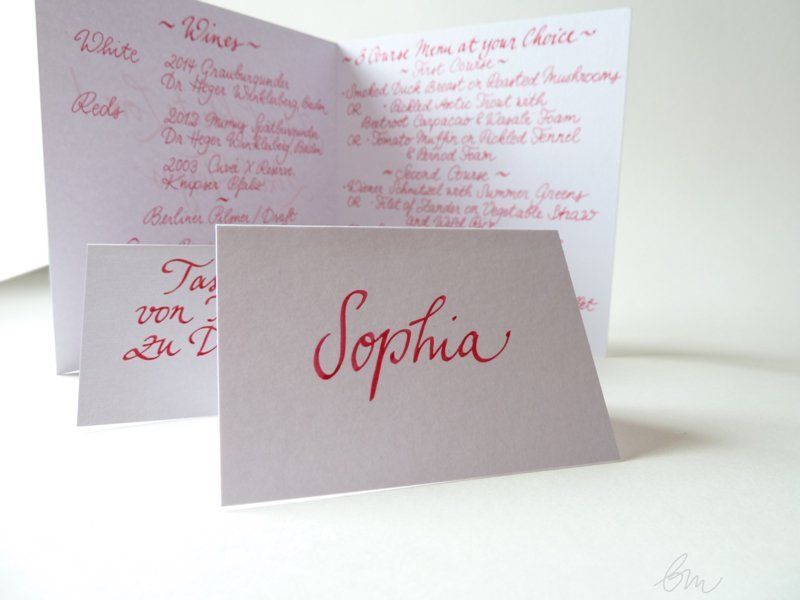 ~ Wines ~
White
2014 Grauburgunder
Dr Heger Winklerberg, Baden
Reds
2012 Mimus Spätburgunder
Dr Heger Winklerberg Baden
2003 Cuveé X Reserve
Knipser Pfalz
~
Berliner Pilsner/Draft
~ 3 Course Menu at your Choice ~
~ First Course ~
· Smoked Duck Breast on Roasted Mushrooms
OR · Pickled Arctic Trout with
Beetroot Carpacao & Wasabe Foam
OR · Tomato Muffin on Pickled Fennel
& Pernod Foam
~ Second Course ~
· Wiener Schnitzel with Summer Greens
OR · Filet of Zander on Vegetable Straw
and Wild
von
zu D
Sophia